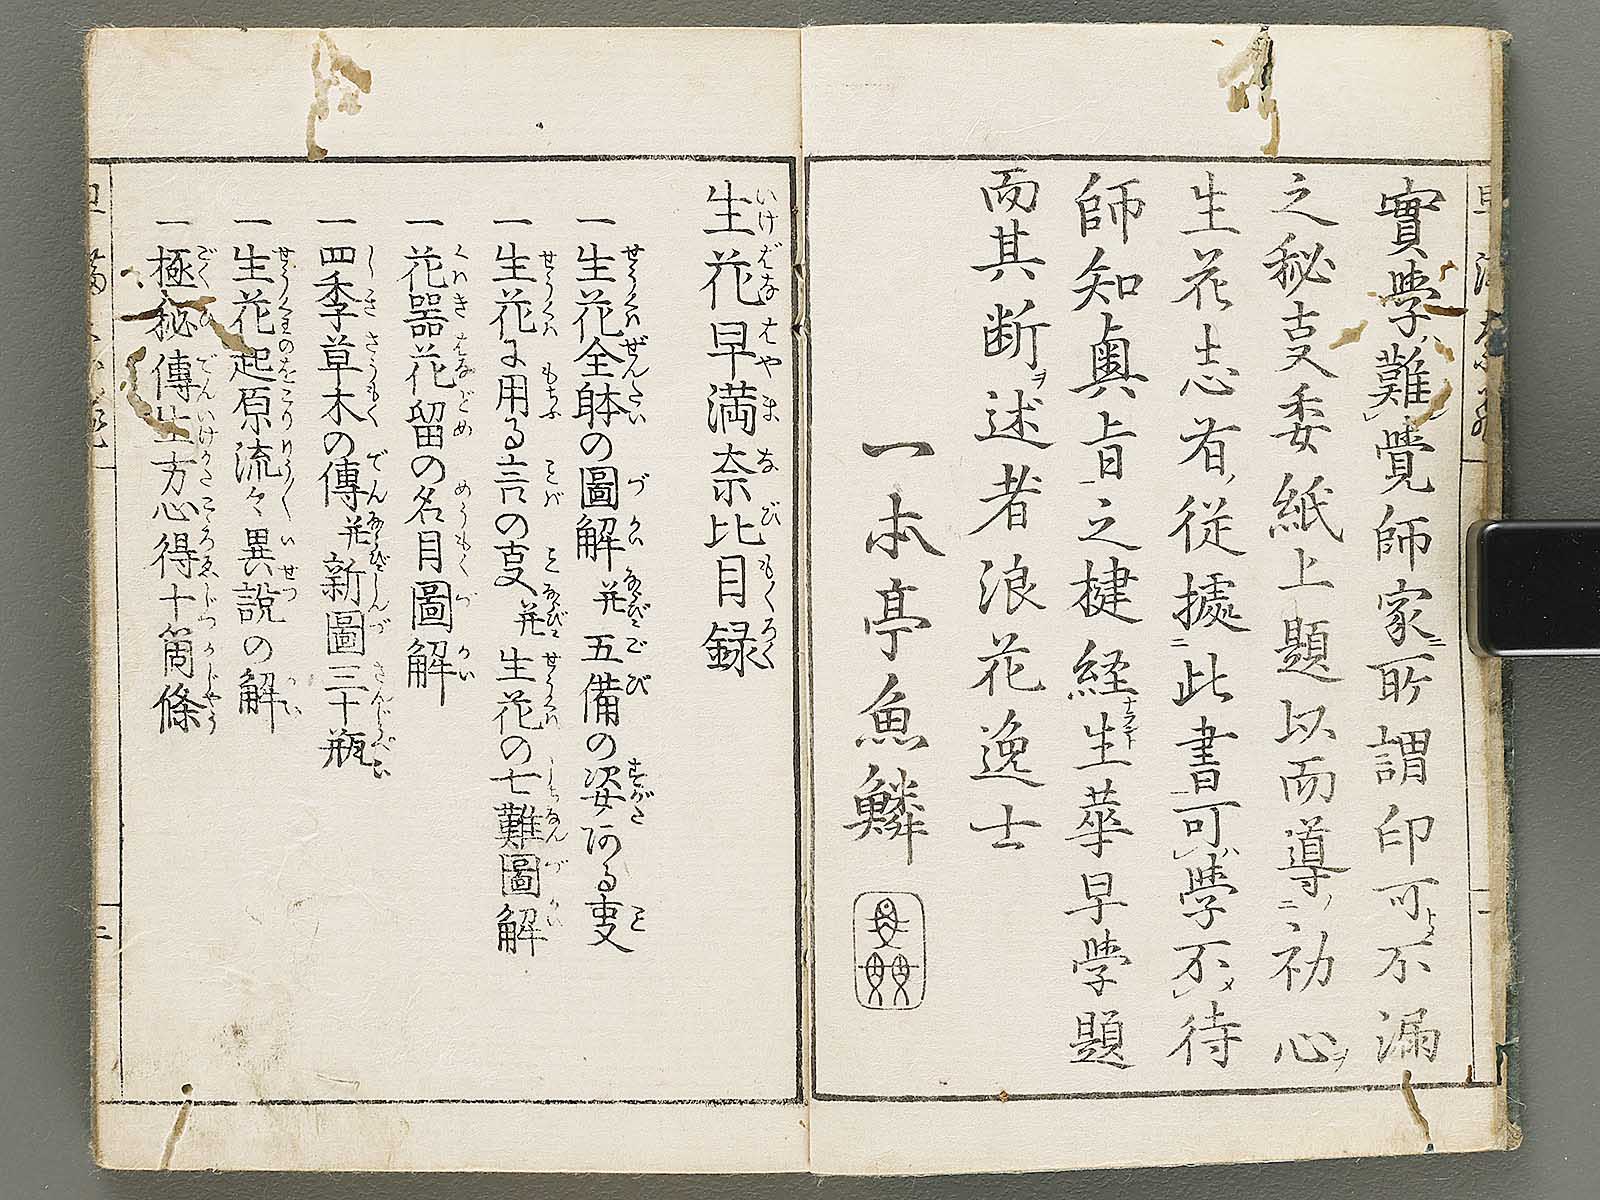 實學難覺師家所謂印可不漏
之秘叓委紙上題以而導初心
生花志有従據此書可學不待
師知奥旨之楗経生華早學題
而其断述者浪花逸士
一本亭魚鱗
生花早満奈比目録
一生花全躰の圖解并五備の姿ある叓
一生花に用る言の叓并生花の七難圖解
一花器花留の名目圖解
一四季草木の傳并新圖三十瓶
一生花起原流々異説の解
一極秘傳生方心得十箇條